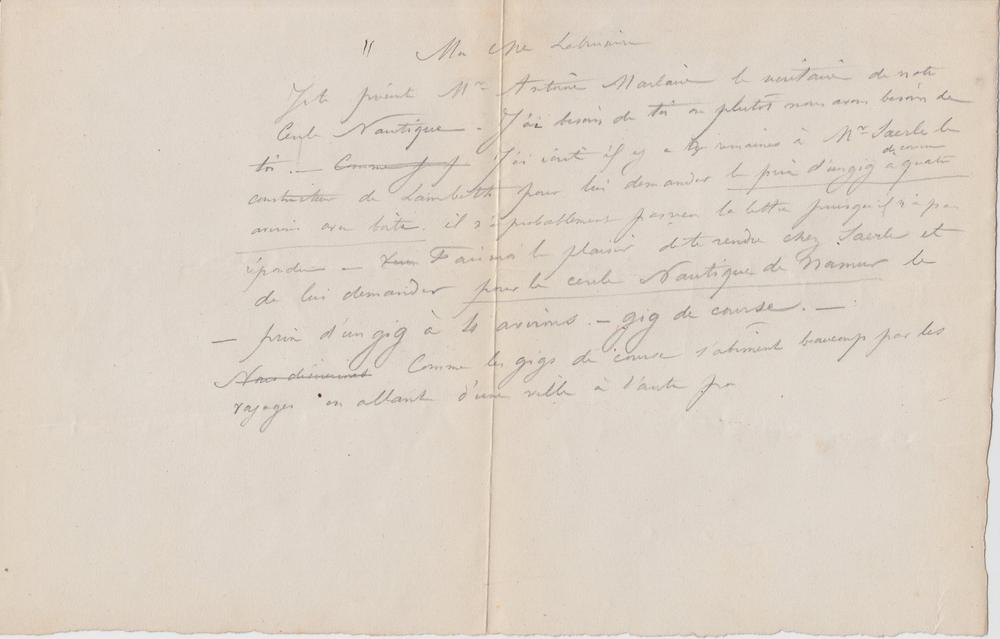 Mon cher
Je te présente Mr Antoine Marlaire le secrétaire de notre
Cercle Nautique. J'ai besoin de toi ou plutôt nous avons besoin de
toi. — Comme J'ai écrit il y a semaines à Mr Saerle le
constructeur de Lambeth pour lui demander le prix d'un gig de course à quatre
avirons avec boîte. il n'a probablement pas reçu la lettre puisqu'il n'a pas
répondu — Fais moi le plaisir de te rendre chez Saerle et
de lui demander pour le cercle Nautique de Namur le
— prix d'un gig à 4 avirons. — gig de course. —
Nous désirerions Comme les gigs de course s'abiment beaucoup par les
voyages en allant d'une ville à l'autre